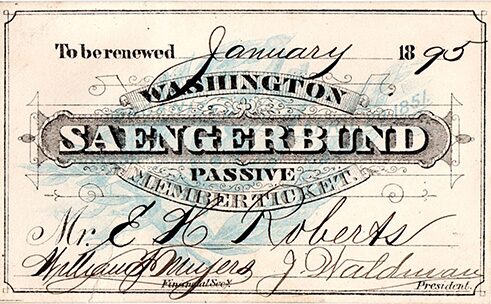 To be renewed January 1895
WASHINGTON
1851.
SAENGERBUND
PASSIVE
MEMBER TICKET.
Mr. E K Roberts
William P Meyers J. Waldman
Financial Sec'y. President.